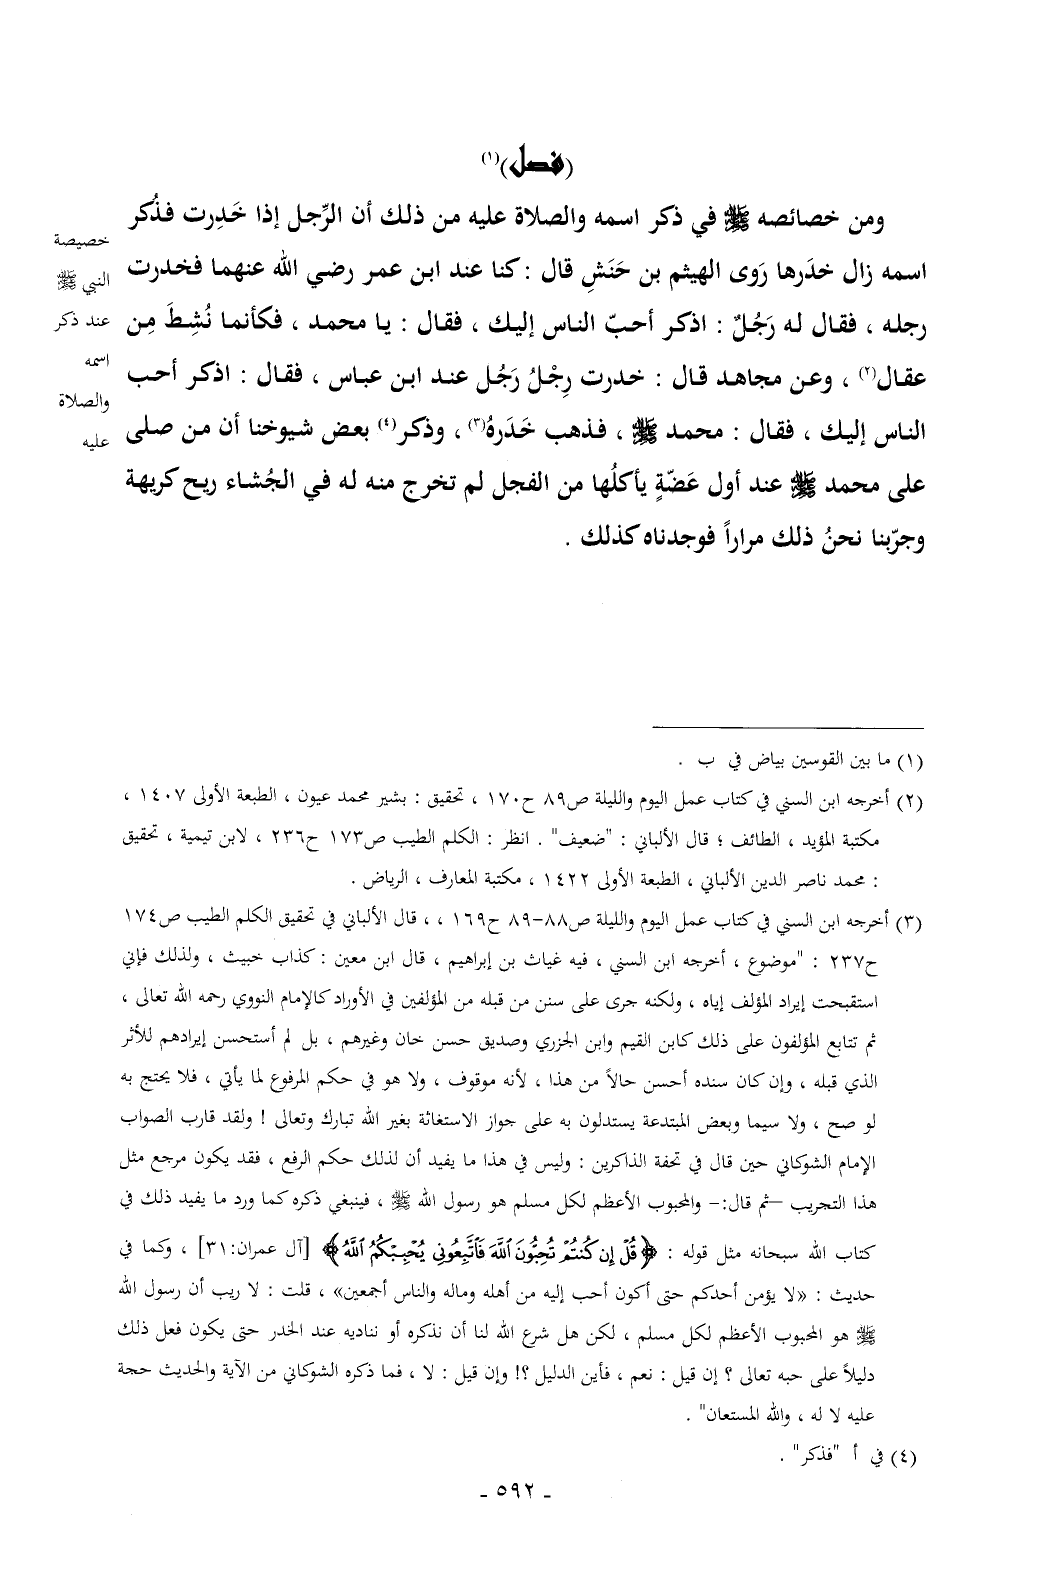 (فصل)(١)
ومن خصائصه ﷺ في ذكر اسمه والصلاة عليه من ذلك أن الرِّجل إذا خَدِرت فذُكر
اسمه زال خدَرها رَوى الهيثم بن حَنَشِ قال : كنا عند ابن عمر رضي الله عنهما فخدرت
رجله ، فقال له رَجُلٌ : اذكر أحبّ الناس إليك ، فقال : يا محمد ، فكأنما نُشِطَ مِن
عقال(٢) ، وعن مجاهد قال : خدرت رِجْلُ رَجُل عند ابن عباس ، فقال : اذكر أحب
الناس إليك ، فقال : محمد ﷺ ، فذهب خَدَرهُ(٣) ، وذكر(٤) بعض شيوخنا أن من صلى
على محمد ﷺ عند أول عَضّةٍ يأكلُها من الفجل لم تخرج منه له في الجُشاء ريح كريهة
وجرّبنا نحنُ ذلك مراراً فوجدناه كذلك .
خصيصة
النبي ﷺ
عند ذكر
اسمه
والصلاة
عليه
(١) ما بين القوسين بياض في ب .
(٢) أخرجه ابن السني في كتاب عمل اليوم والليلة ص٨٩ ح١٧٠ ، تحقيق : بشير محمد عيون ، الطبعة الأولى ١٤٠٧ ،
مكتبة المؤيد ، الطائف ؛ قال الألباني : "ضعيف" . انظر : الكلم الطيب ص١٧٣ ح٢٣٦ ، لابن تيمية ، تحقيق
: محمد ناصر الدين الألباني ، الطبعة الأولى ١٤٢٢ ، مكتبة المعارف ، الرياض .
(٣) أخرجه ابن السني في كتاب عمل اليوم والليلة ص٨٨-٨٩ ح١٦٩ ، ، قال الألباني في تحقيق الكلم الطيب ص١٧٤
ح٢٣٧ : "موضوع ، أخرجه ابن السني ، فيه غياث بن إبراهيم ، قال ابن معين : كذاب خبيث ، ولذلك فإني
استقبحت إيراد المؤلف إياه ، ولكنه جرى على سنن من قبله من المؤلفين في الأوراد كالإمام النووي رحمه الله تعالى ،
ثم تتابع المؤلفون على ذلك كابن القيم وابن الجزري وصديق حسن خان وغيرهم ، بل لم أستحسن إيرادهم للأثر
الذي قبله ، وإن كان سنده أحسن حالاً من هذا ، لأنه موقوف ، ولا هو في حكم المرفوع لما يأتي ، فلا يحتج به
لو صح ، ولا سيما وبعض المبتدعة يستدلون به على جواز الاستغاثة بغير الله تبارك وتعالى ! ولقد قارب الصواب
الإمام الشوكاني حين قال في تحفة الذاكرين : وليس في هذا ما يفيد أن لذلك حكم الرفع ، فقد يكون مرجع مثل
هذا التجريب –ثم قال:- والمحبوب الأعظم لكل مسلم هو رسول الله ﷺ ، فينبغي ذكره كما ورد ما يفيد ذلك في
كتاب الله سبحانه مثل قوله : ﴿قُلْ إِن كُنتُمْ تُحِبُّونَ ٱللَّهَ فَٱتَّبِعُونِي يُحْبِبْكُمُ ٱللَّهُ﴾ [آل عمران:٣١] ، وكما في
حديث : «لا يؤمن أحدكم حتى أكون أحب إليه من أهله وماله والناس أجمعين» ، قلت : لا ريب أن رسول الله
ﷺ هو المحبوب الأعظم لكل مسلم ، لكن هل شرع الله لنا أن نذكره أو نناديه عند الخدر حتى يكون فعل ذلك
دليلاً على حبه تعالى ؟ إن قيل : نعم ، فأين الدليل ؟! وإن قيل : لا ، فما ذكره الشوكاني من الآية والحديث حجة
عليه لا له ، والله المستعان" .
(٤) في أ "فذكر" .
- ٥٩٢ -